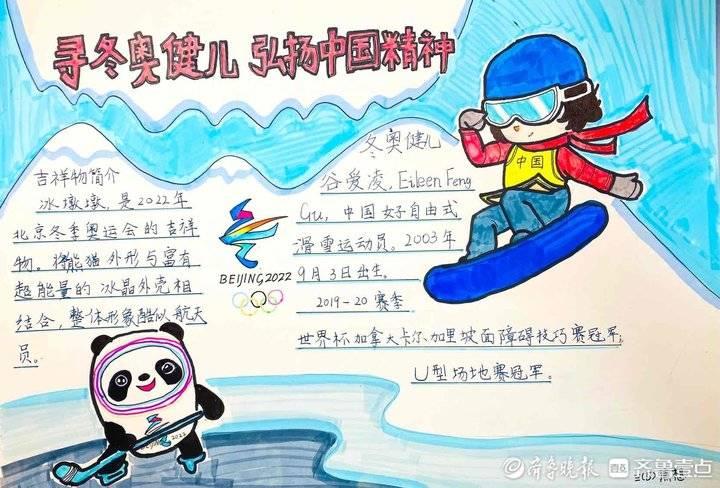 寻冬奥健儿 弘扬中国精神
吉祥物简介
冰墩墩,是2022年
北京冬季奥运会的吉祥
物。将熊猫外形与富有
超能量的冰晶外壳相
结合,整体形象酷似航天
员。
BEIJING 2022
冬奥健儿
谷爱凌,Eileen Feng
Gu,中国女子自由式
滑雪运动员。2003年
9月3日出生。
2019-20 赛季
世界杯加拿大卡尔加里坡面障碍技巧赛冠军;
U型场地赛冠军。
中国
BEIJING 2022
齐鲁晚报 齐鲁壹点